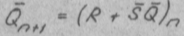 Q̄ₙ₊₁ = (R + S̄Q̄)ₙ